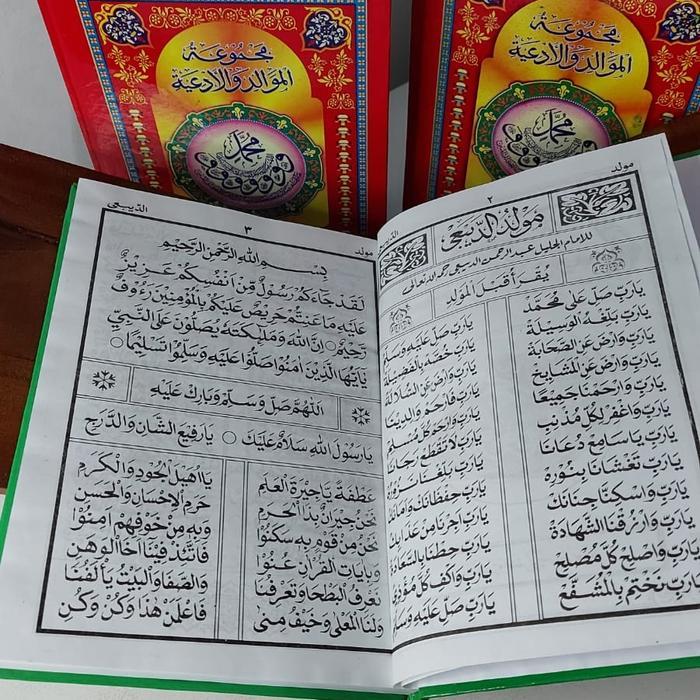 مجموعة
الموالد والأدعية
محمد
مجموعة
الموالد والأدعية
محمد
مولد
٢
مولد الديبعي
للامام الجليل عبد الرحمن الديبعي رحمه الله تعالى
يقرأ قبل المولد
يارب صل على محمد
يارب صل عليه وسلم
يارب بلغه الوسيلة
يارب خصه بالفضيلة
يارب وارض عن الصحابة
يارب وارض عن السلالة
يارب وارض عن المشايخ
يارب فارحم والدينا
يارب وارحمنا جميعا
يارب وارحم كل مسلم
يارب واغفر لكل مذنب
يارب لا تقطع رجانا
يارب ياسامع دعانا
يارب بلغنا نزوره
يارب تغشانا بنوره
يارب حفظانك وامانك
يارب واسكنا جنانك
يارب اجرنا من عذابك
يارب وارزقنا الشهادة
يارب حطنا بالسعادة
يارب واصلح كل مصلح
يارب واكف كل مؤذي
يارب نختم بالمشفع
يارب صل عليه وسلم
الديبعي
٣
مولد
بسم الله الرحمن الرحيم
لقد جاءكم رسول من انفسكم عزيز
عليه ما عنتم حريص عليكم بالمؤمنين رءوف
رحيم ○ ان الله وملئكته يصلون على النبي
يايها الذين امنوا صلوا عليه وسلموا تسليما ○
اللهم صل وسلم وبارك عليه
يارسول الله سلام عليك ○ يارفيع الشان والدرج
عطفة ياجيرة العلم
يااهيل الجود والكرم
نحن جيران بذا الحرم
حرم الإحسان والحسن
نحن من قوم به سكنوا
وبه من خوفهم امنوا
وبايات القران عنوا
فاتئد فينا اخا الوهن
نعرف البطحا وتعرفنا
والصفا والبيت يألفنا
ولنا المعلى وخيف منى
فاعلمن هذا وكن وكن